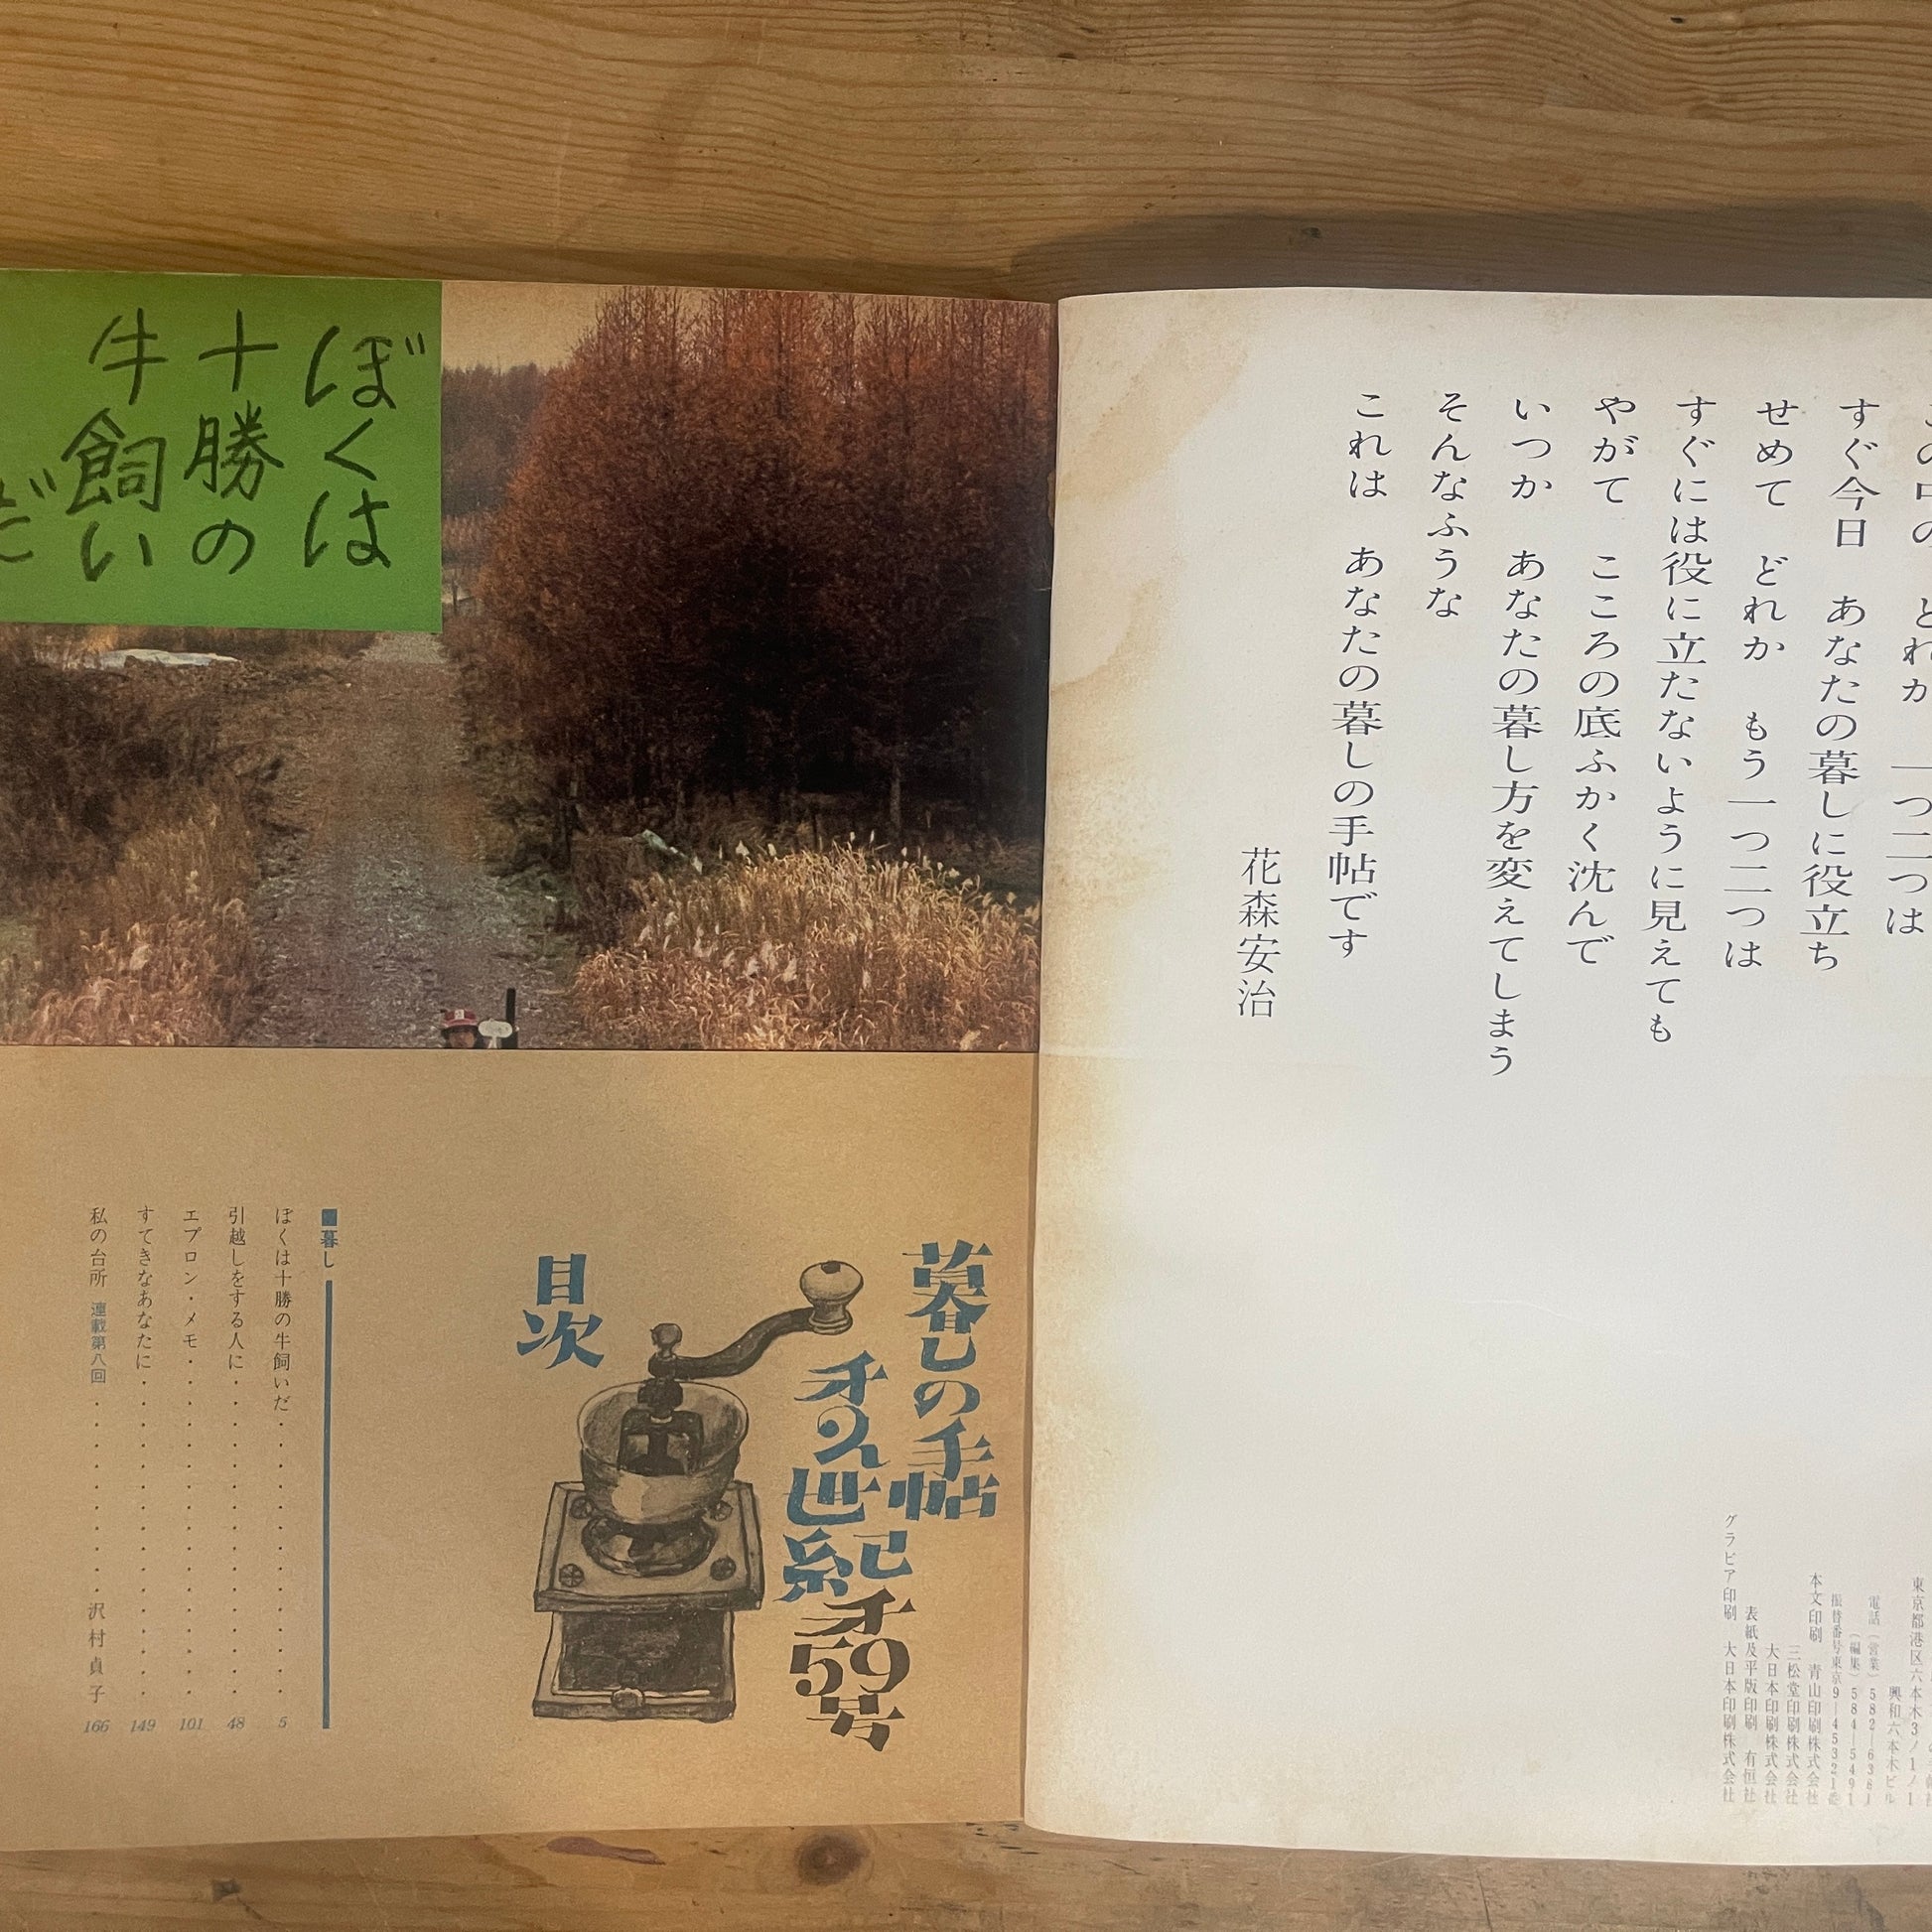 の中の どれか 一つ二つは
すぐ今日 あなたの暮しに役立ち
せめて どれか もう一つ二つは
すぐには役に立たないように見えても
やがて こころの底ふかく沈んで
いつか あなたの暮し方を変えてしまう
そんなふうな
これは あなたの暮しの手帖です
花森安治
東京都港区六本木3ノ1ノ1
興和六本木ビル
電話（営業）582—6361
（編集）584—5491
振替番号東京9—45321
本文印刷 青山印刷株式会社
三松堂印刷株式会社
大日本印刷株式会社
表紙及平版印刷 有恒社
グラビア印刷 大日本印刷株式会社
ぼくは
十勝の
牛飼い
だ
暮しの手帖
オ2世紀
オ59号
目次
■暮し
ぼくは十勝の牛飼いだ・・・・・・・5
引越しをする人に・・・・・・・・48
エプロン・メモ・・・・・・・・・101
すてきなあなたに・・・・・・・・149
私の台所 連載第八回・・・・・沢村貞子 166